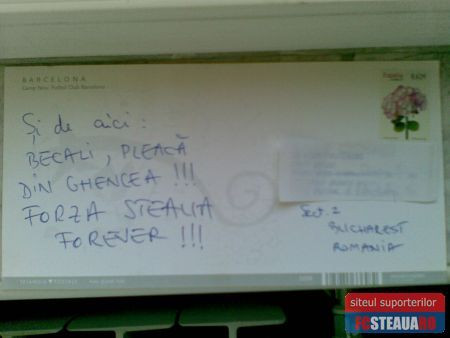 BARCELONA
Camp Nou. Futbol Club Barcelona
España
Și de aici:
BECALI, PLEACĂ
DIN GHENCEA !!!
FORZA STEAUA
FOREVER !!!
Sect. 2
BUCHAREST
ROMANIA
TRIANGLE POSTALS
siteul suporterilor
FCSTEAUA.RO